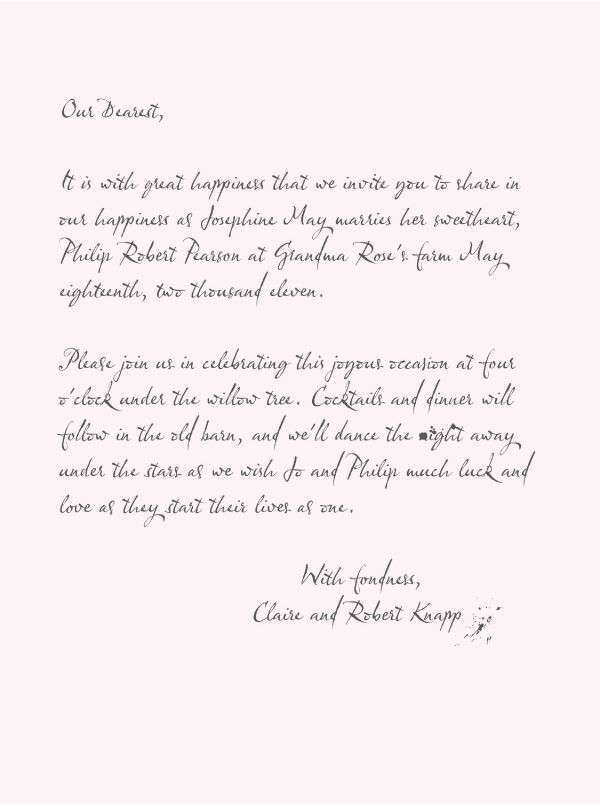 Our Dearest,
It is with great happiness that we invite you to share in
our happiness as Josephine May marries her sweetheart,
Philip Robert Pearson at Grandma Rose's farm May
eighteenth, two thousand eleven.
Please join us in celebrating this joyous occasion at four
o'clock under the willow tree. Cocktails and dinner will
follow in the old barn, and we'll dance the night away
under the stars as we wish Jo and Philip much luck and
love as they start their lives as one.
With fondness,
Claire and Robert Knapp